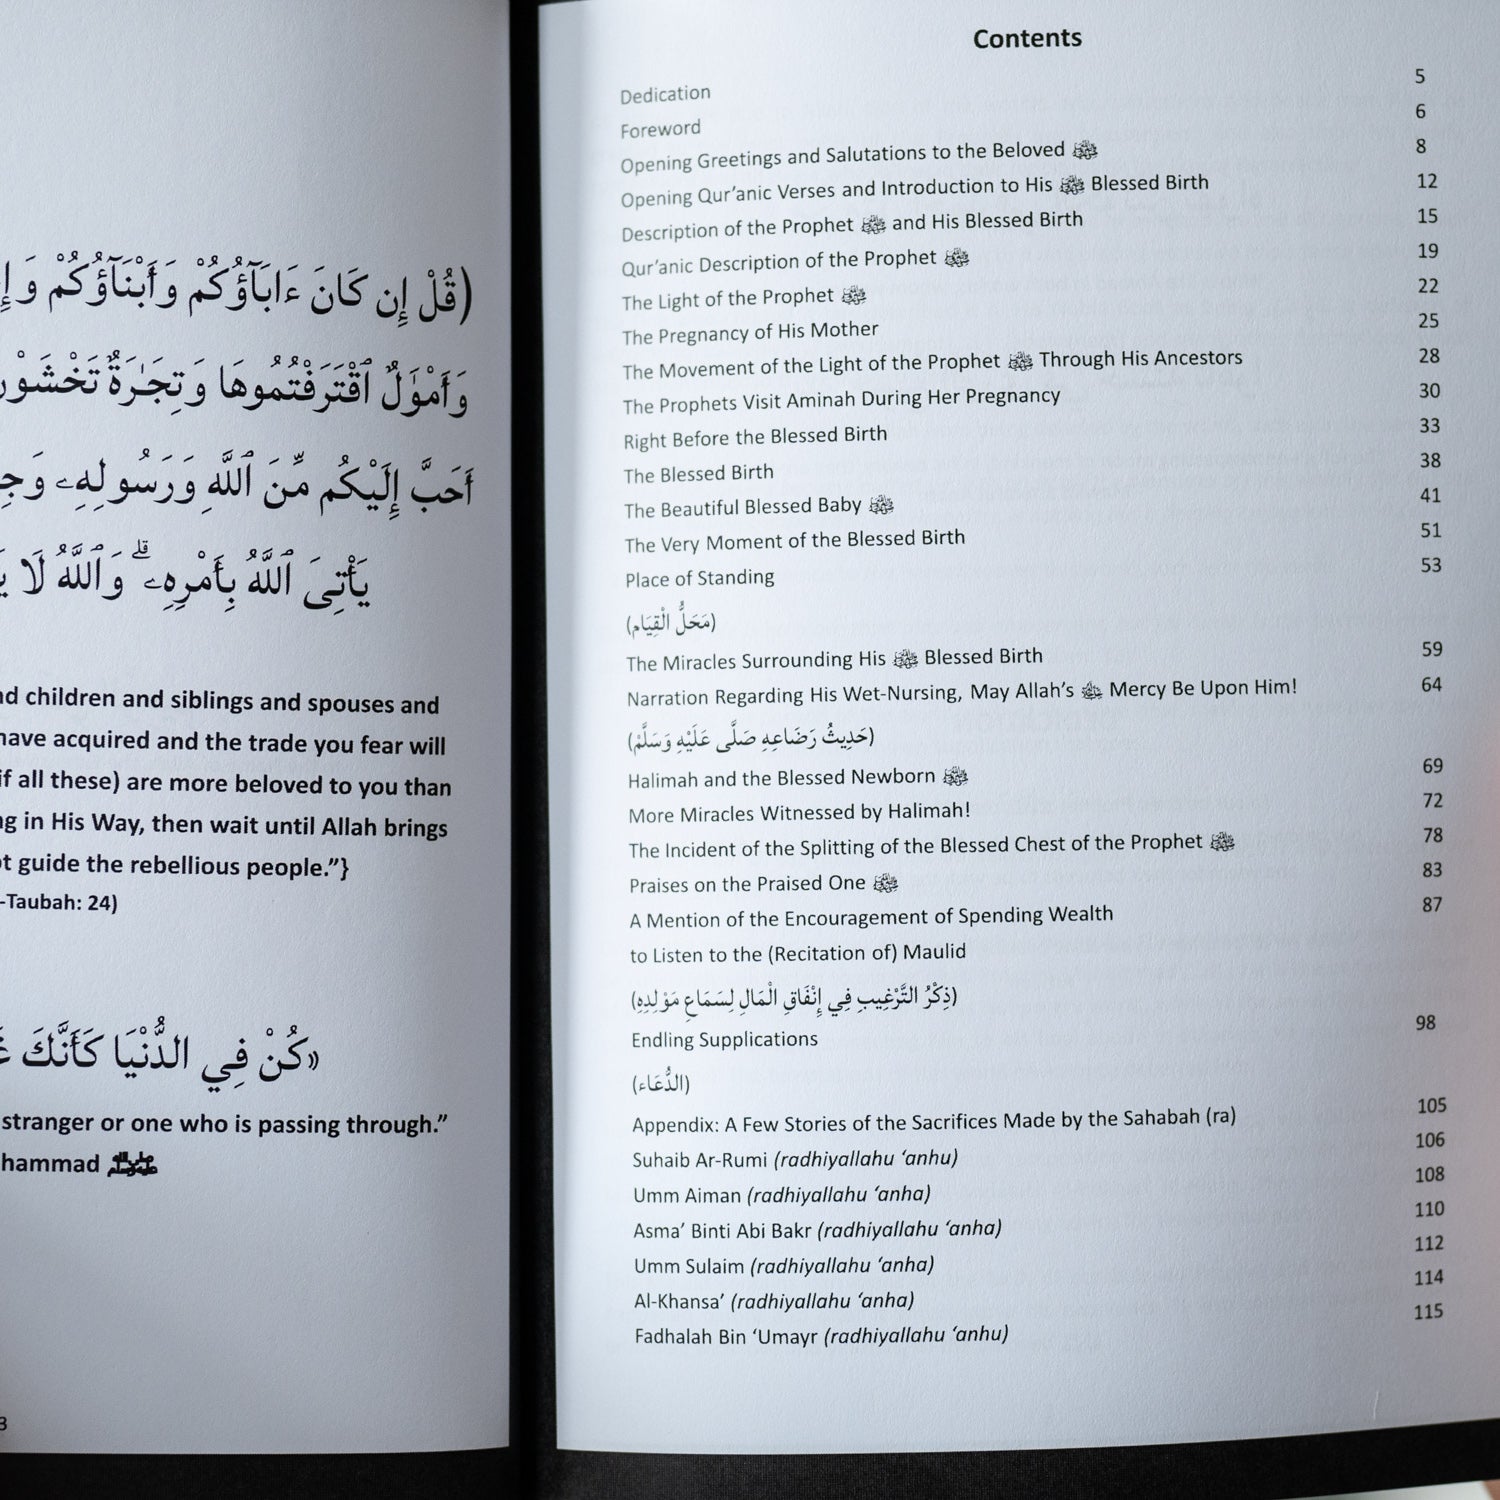 (قُلْ إِن كَانَ ءَابَآؤُكُمْ وَأَبْنَآؤُكُمْ
وَأَمْوَٰلٌ ٱقْتَرَفْتُمُوهَا وَتِجَـٰرَةٌ
أَحَبَّ إِلَيْكُم مِّنَ ٱللَّهِ وَرَسُولِهِۦ
يَأْتِىَ ٱللَّهُ بِأَمْرِهِۦ ۗ وَٱللَّهُ لَا
children and siblings and spouses and
have acquired and the trade you fear will
if all these) are more beloved to you than
in His Way, then wait until Allah brings
guide the rebellious people.”}
-Taubah: 24)
«كُنْ فِي الدُّنْيَا كَأَنَّكَ
stranger or one who is passing through.”
hammad ﷺ
3
Contents
Dedication 5
Foreword 6
Opening Greetings and Salutations to the Beloved ﷺ 8
Opening Qur’anic Verses and Introduction to His ﷺ Blessed Birth 12
Description of the Prophet ﷺ and His Blessed Birth 15
Qur’anic Description of the Prophet ﷺ 19
The Light of the Prophet ﷺ 22
The Pregnancy of His Mother 25
The Movement of the Light of the Prophet ﷺ Through His Ancestors 28
The Prophets Visit Aminah During Her Pregnancy 30
Right Before the Blessed Birth 33
The Blessed Birth 38
The Beautiful Blessed Baby ﷺ 41
The Very Moment of the Blessed Birth 51
Place of Standing 53
(مَحَلُّ الْقِيَام)
The Miracles Surrounding His ﷺ Blessed Birth 59
Narration Regarding His Wet-Nursing, May Allah’s Mercy Be Upon Him! 64
(حَدِيثُ رَضَاعِهِ صَلَّى عَلَيْهِ وَسَلَّمْ)
Halimah and the Blessed Newborn ﷺ 69
More Miracles Witnessed by Halimah! 72
The Incident of the Splitting of the Blessed Chest of the Prophet ﷺ 78
Praises on the Praised One ﷺ 83
A Mention of the Encouragement of Spending Wealth 87
to Listen to the (Recitation of) Maulid
(ذِكْرُ التَّرْغِيبِ فِي إِنْفَاقِ الْمَالِ لِسَمَاعِ مَوْلِدِهِ)
Endling Supplications 98
(الدُّعَاء)
Appendix: A Few Stories of the Sacrifices Made by the Sahabah (ra) 105
Suhaib Ar-Rumi (radhiyallahu ‘anhu) 106
Umm Aiman (radhiyallahu ‘anha) 108
Asma’ Binti Abi Bakr (radhiyallahu ‘anha) 110
Umm Sulaim (radhiyallahu ‘anha) 112
Al-Khansa’ (radhiyallahu ‘anha) 114
Fadhalah Bin ‘Umayr (radhiyallahu ‘anhu) 115